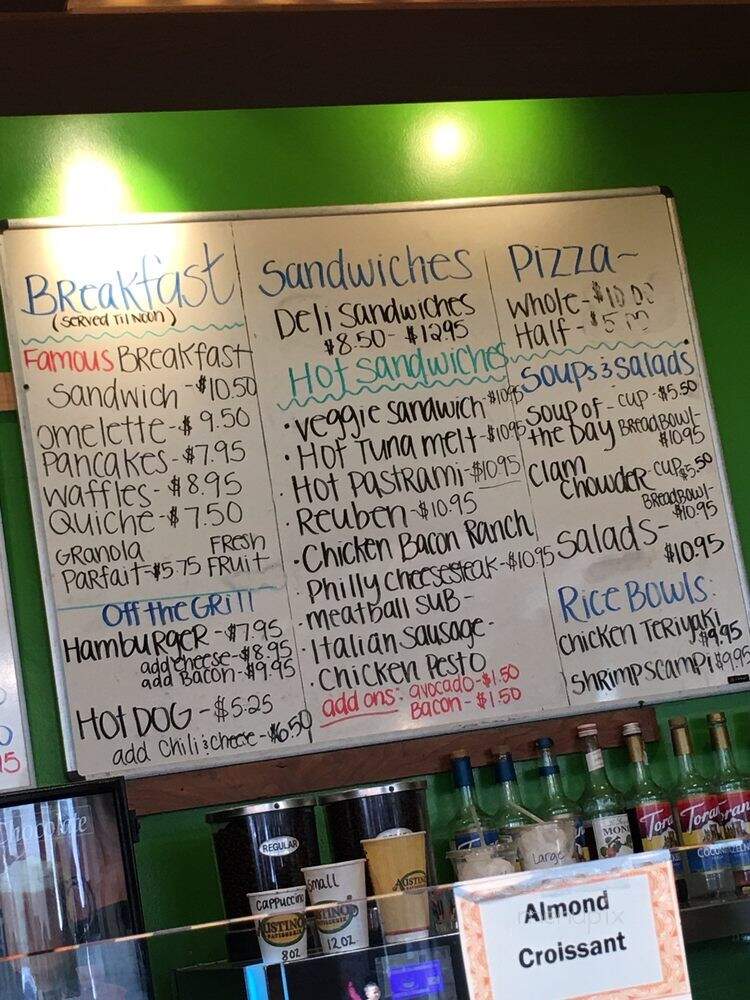 Breakfast
(Served Til Noon)
Famous Breakfast
Sandwich - $10.50
Omelette - $9.50
Pancakes - $7.95
Waffles - $8.95
Quiche - $7.50
Granola
Parfait - $5.75
Fresh
Fruit
Off the Grill
Hamburger - $7.95
add cheese - $8.95
add Bacon - $9.95
Hot Dog - $5.25
add Chili & cheese - $6.50
Sandwiches
Deli Sandwiches
$8.50 - $12.95
Hot Sandwiches
• Veggie Sandwich $10.95
• Hot Tuna melt - $10.95
• Hot Pastrami - $10.95
• Reuben - $10.95
• Chicken Bacon Ranch
• Philly Cheesesteak - $10.95
• meatball sub -
• Italian Sausage -
• Chicken Pesto
add ons: avocado - $1.50
Bacon - $1.50
Pizza ~
Whole - $10.00
Half -
Soups & Salads
Soup of the Day
- cup - $5.50
Bread Bowl -
$10.95
Clam
Chowder
- cup $5.50
Bread Bowl -
$10.95
Salads -
$10.95
Rice Bowls:
Chicken Teriyaki
$9.95
Shrimp Scampi $9.95
Chocolate
REGULAR
Cappuccino
8oz
small
12oz
Large
Almond
Croissant